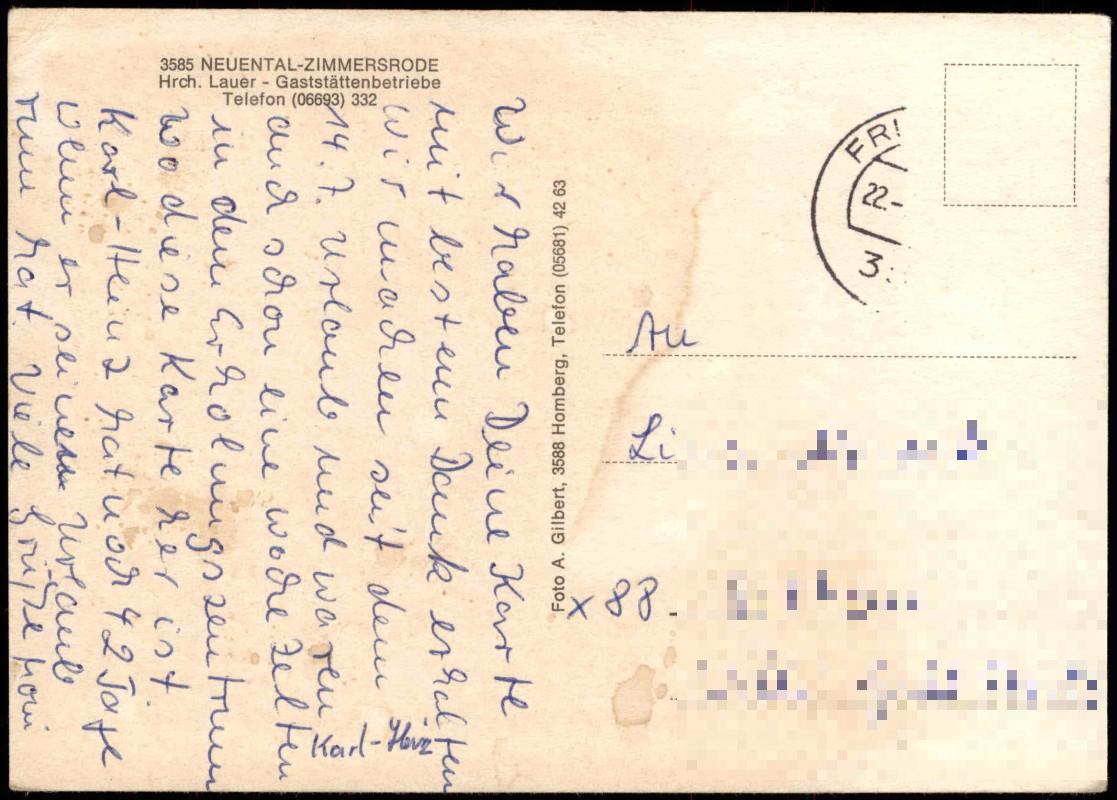 3585 NEUENTAL-ZIMMERSRODE
Hrch. Lauer - Gaststättenbetriebe
Telefon (06693) 332
Wir haben Deine Karte
mit bestem Dank erhalten
Wir machen seit dem
14.7. Urlaub und waren
auch schon eine woche Zelten
in dem Erholungszentrum
wo diese Karte her ist
Karl-Heinz hat noch 42 Tage
wenn er seinen Urlaub
rum hat. Viele Grüße
Karl-Heinz
Foto A. Gilbert, 3588 Homberg, Telefon (05681) 42 63
FRI
22.-
3
An
Li
x 88